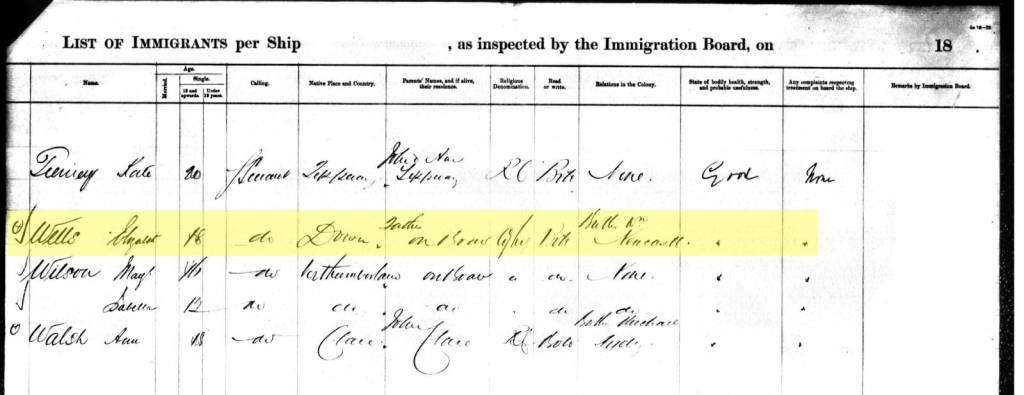 LIST OF IMMIGRANTS per Ship , as inspected by the Immigration Board, on 18
Name. Married. Age. Single. 12 and upwards. Under 12 years. Calling. Native Place and Country. Parents' Names, and if alive, their residence. Religious Denomination. Read or write. Relations in the Colony. State of bodily health, strength, and probable usefulness. Any complaints respecting treatment on board the ship. Remarks by Immigration Board.
John & Ann
Tierney Kate 20 Servant Tipperary Tipperary RC Both None. Good None
Brother Wm
Wells Elizabeth 18 do Down on Board Both Newcastle " "
Wilson 16 do Northumberland on Board " do None. " "
12 do do do do do
John Michael
Walsh Ann 18 do Clare Clare RC Both " "